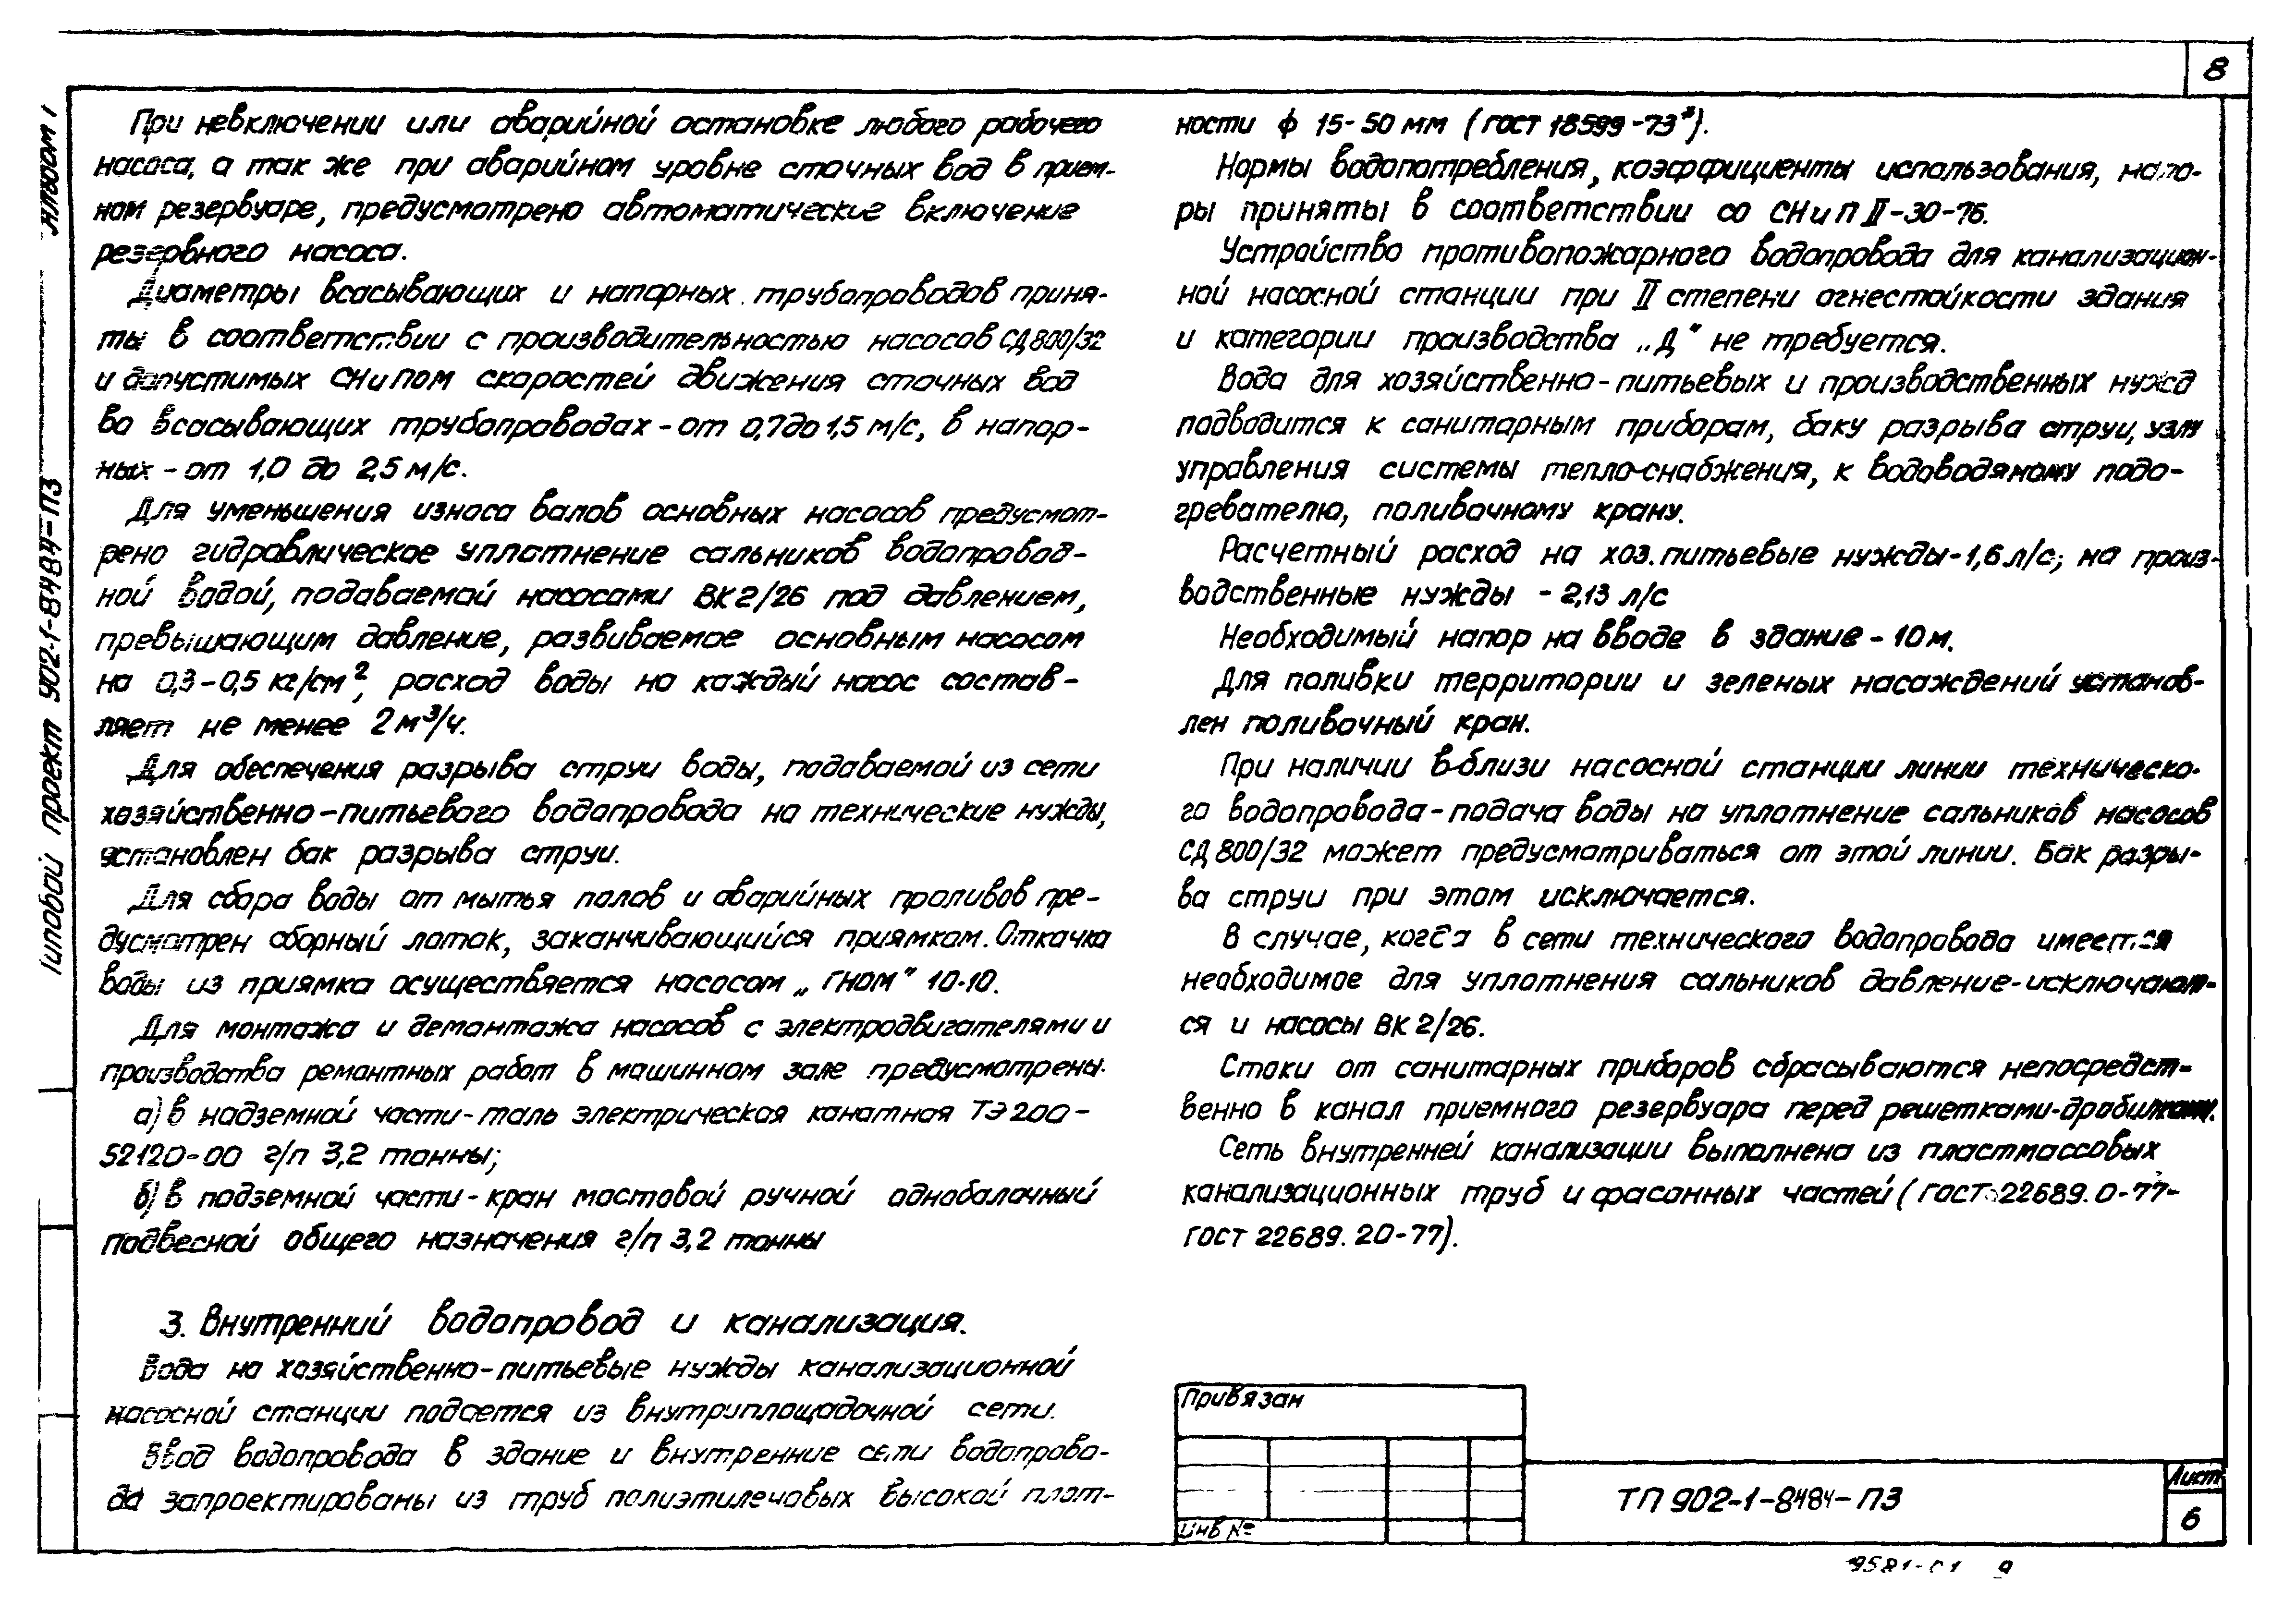 8
Альбом I
Типовой проект 902-1-84.84-ПЗ
При невключении или аварийной остановке любого рабочего
насоса, а так же при аварийном уровне сточных вод в прием-
ном резервуаре, предусмотрено автоматические включение
резервного насоса.
Диаметры всасывающих и напорных трубопроводов приня-
ты в соответствии с производительностью насосов СД 800/32
и допустимых СНиПом скоростей движения сточных вод
во всасывающих трубопроводах - от 0,7 до 1,5 м/с, в напор-
ных - от 1,0 до 2,5 м/с.
Для уменьшения износа валов основных насосов предусмот-
рено гидравлическое уплотнение сальников водопровод-
ной водой, подаваемой насосами ВК 2/26 под давлением,
превышающим давление, развиваемое основным насосом
на 0,3-0,5 кг/см², расход воды на каждый насос состав-
ляет не менее 2 м³/ч.
Для обеспечения разрыва струи воды, подаваемой из сети
хозяйственно-питьевого водопровода на технические нужды,
установлен бак разрыва струи.
Для сбора воды от мытья полов и аварийных проливов пре-
дусмотрен сборный лоток, заканчивающийся приямком. Откачка
воды из приямка осуществяется насосом „ГНОМ" 10-10.
Для монтажа и демонтажа насосов с электродвигателями и
производства ремонтных работ в машинном зале предусмотрены.
а) в надземной части - таль электрическая канатная ТЭ 200-
52120-00 г/п 3,2 тонны;
б) в подземной части - кран мостовой ручной однобалочный
подвесной общего назначения г/п 3,2 тонны
3. Внутренний водопровод и канализация.
Вода на хозяйственно-питьевые нужды канализационной
насосной станции подается из внутриплощадочной сети.
Ввод водопровода в здание и внутренние сети водопрово-
да запроектированы из труб полиэтиленовых высокой плот-
ности ф 15-50 мм (ГОСТ 18599-73*).
Нормы водопотребления, коэффициенты использования, напо-
ры приняты в соответствии со СНиП II-30-76.
Устройство противопожарного водопровода для канализацион-
ной насосной станции при II степени огнестойкости здания
и категории производства „Д" не требуется.
Вода для хозяйственно-питьевых и производственных нужд
подводится к санитарным приборам, баку разрыва струи, узлу
управления системы тепло-снабжения, к водоводяному подо-
гревателю, поливочному крану.
Расчетный расход на хоз.питьевые нужды - 1,6 л/с; на произ-
водственные нужды - 2,13 л/с
Необходимый напор на вводе в здание - 10 м.
Для поливки территории и зеленых насаждений установ-
лен поливочный кран.
При наличии вблизи насосной станции линии техническо-
го водопровода - подача воды на уплотнение сальников насосов
СД 800/32 может предусматриваться от этой линии. Бак разры-
ва струи при этом исключается.
В случае, когда в сети технического водопровода имеется
необходимое для уплотнения сальников давление - исключают-
ся и насосы ВК 2/26.
Стоки от санитарных приборов сбрасываются непосредст-
венно в канал приемного резервуара перед решетками-дробилками.
Сеть внутренней канализации выполнена из пластмассовых
канализационных труб и фасонных частей (ГОСТ 22689.0-77-
ГОСТ 22689.20-77).
Привязан
Инв №
ТП 902-1-84.84-ПЗ
Лист
6
9581-01 9